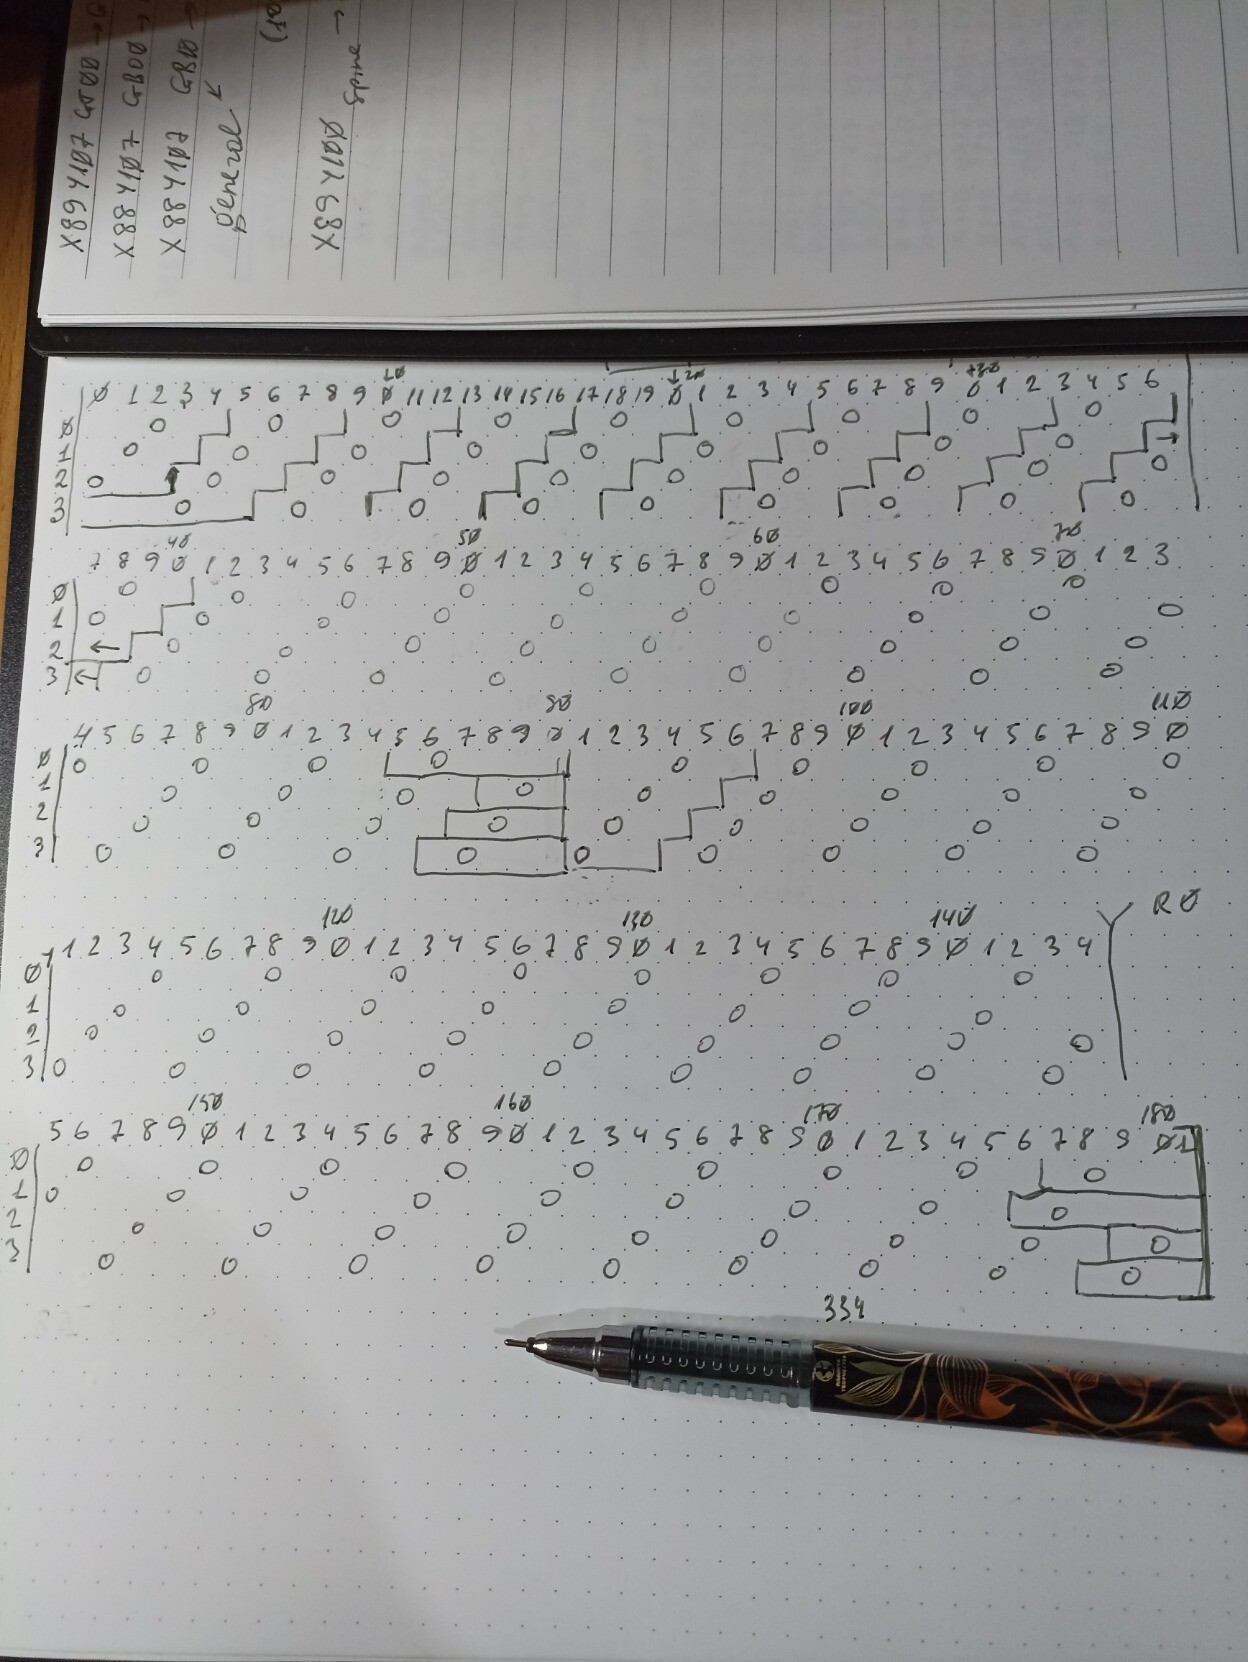 X894107 GT00 →
X884107 GB00 →
X884107 GB10 →
General
X894100 Spine →
10 20 30
0 1 2 3 4 5 6 7 8 9 0 11 12 13 14 15 16 17 18 19 0 1 2 3 4 5 6 7 8 9 0 1 2 3 4 5 6
0
1
2
3
40 50 60 70
7 8 9 0 1 2 3 4 5 6 7 8 9 0 1 2 3 4 5 6 7 8 9 0 1 2 3 4 5 6 7 8 9 0 1 2 3
0
1
2
3
80 90 100 110
4 5 6 7 8 9 0 1 2 3 4 5 6 7 8 9 0 1 2 3 4 5 6 7 8 9 0 1 2 3 4 5 6 7 8 9 0
0
1
2
3
120 130 140 R0
1 2 3 4 5 6 7 8 9 0 1 2 3 4 5 6 7 8 9 0 1 2 3 4 5 6 7 8 9 0 1 2 3 4
0
1
2
3
150 160 170 180
5 6 7 8 9 0 1 2 3 4 5 6 7 8 9 0 1 2 3 4 5 6 7 8 9 0 1 2 3 4 5 6 7 8 9 0 1
0
1
2
3
334